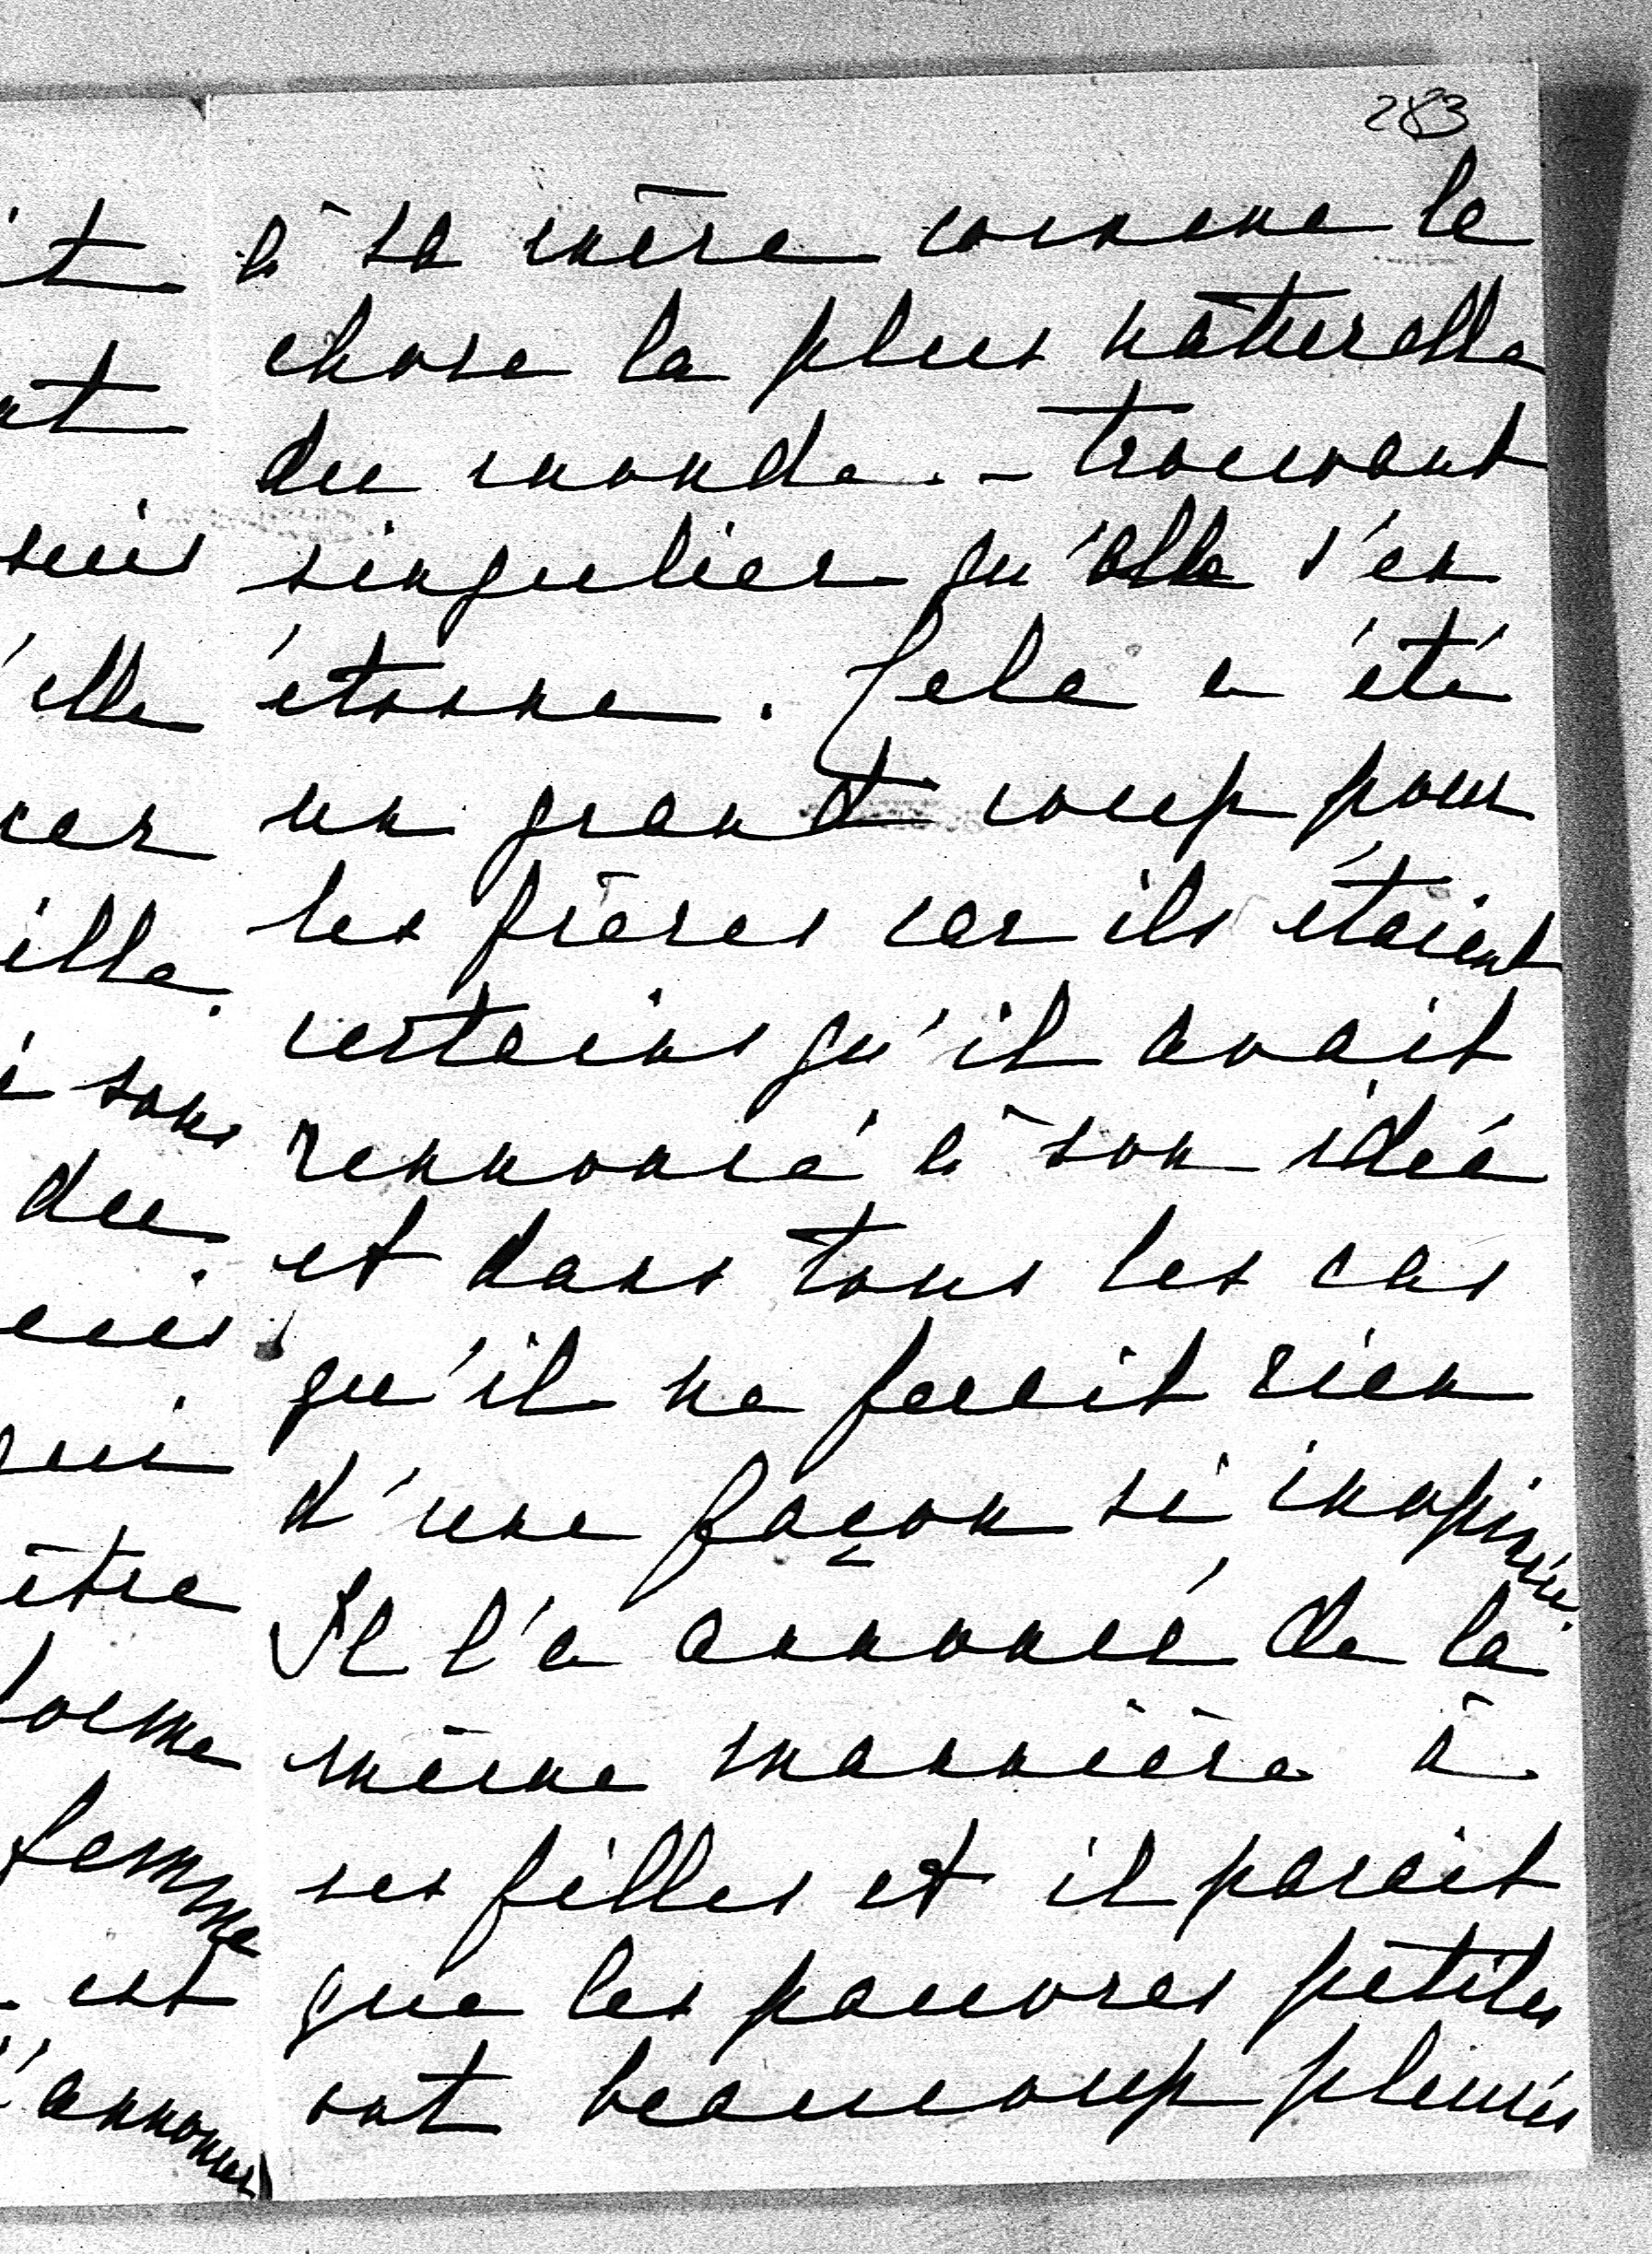 283
à sa mère comme la
chose la plus naturelle
du monde. - trouvant
singulier qu'elle s'en
étonne. Cela a été
un grand coup pour
les frères car ils étaient
certains qu'il avait
rennoncé à son idée
et dans tous les cas
qu'il ne ferait rien
d'une façon si inopinée.
Il l'a annoncé de la
même mannière à
ses filles et il parait
que les pauvres petites
ont beaucoup pleurés
it
nt
suis
'elle
car
ille.
sous
du
qui
être
femme
est
l'annoncer